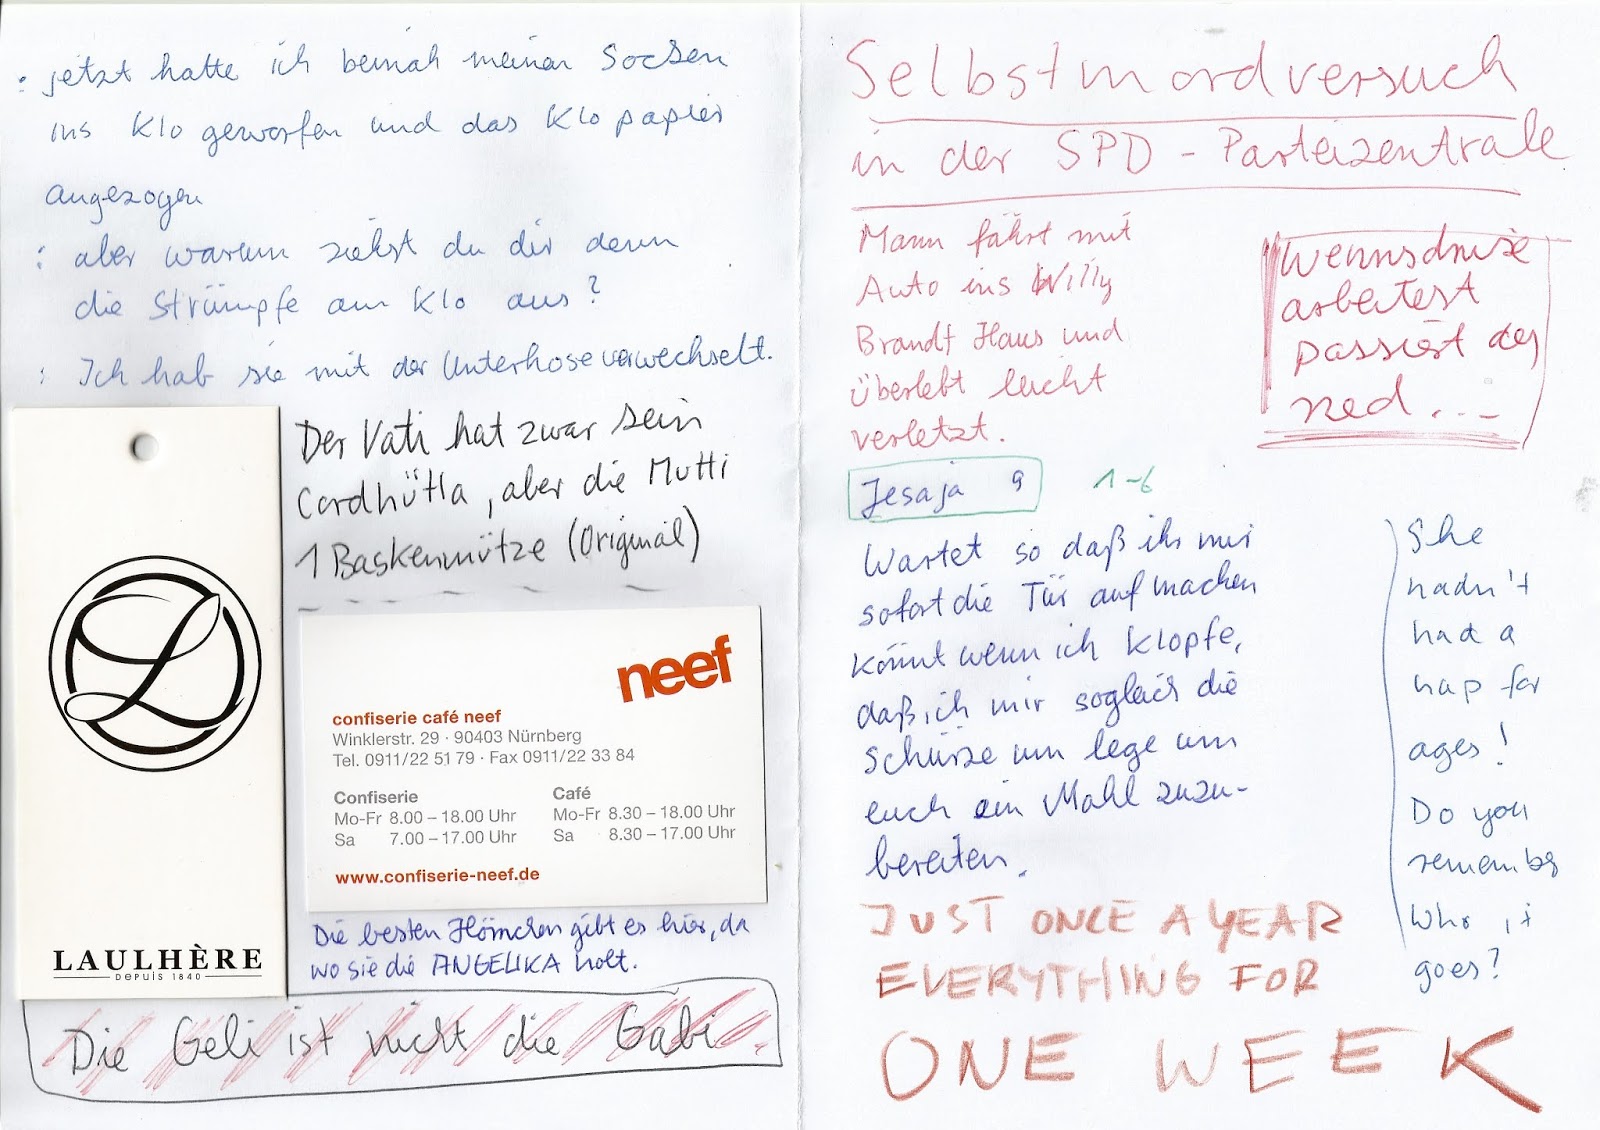 : jetzt hatte ich beinah meinen Socken
ins Klo geworfen und das Klopapier
angezogen
: aber warum ziehst du dir denn
die Strümpfe am Klo aus?
: Ich hab sie mit der Unterhose verwechselt.
Der Vati hat zwar sein
Cordhütla, aber die Mutti
1 Baskenmütze (Original)
L
LAULHÈRE
DEPUIS 1840
neef
confiserie café neef
Winklerstr. 29 · 90403 Nürnberg
Tel. 0911/22 51 79 · Fax 0911/22 33 84
Confiserie
Mo-Fr 8.00 – 18.00 Uhr
Sa 7.00 – 17.00 Uhr
Café
Mo-Fr 8.30 – 18.00 Uhr
Sa 8.30 – 17.00 Uhr
www.confiserie-neef.de
Die besten Hörnchen gibt es hier, da
wo sie die ANGELIKA holt.
Die Geli ist nicht die Gabi.
Selbstmordversuch
in der SPD - Parteizentrale
Mann fährt mit
Auto ins Willy
Brandt Haus und
überlebt leicht
verletzt.
wennsd
arbeitest
passiert des
ned...
Jesaja 9
1-6
Wartet so daß ihr mir
sofort die Tür aufmachen
könnt wenn ich klopfe,
daß ich mir sogleich die
Schürze um lege um
euch ein Mahl zuzu-
bereiten.
She
hadn't
had a
nap for
ages!
Do you
remember
Who it
goes?
JUST ONCE A YEAR
EVERYTHING FOR
ONE WEEK